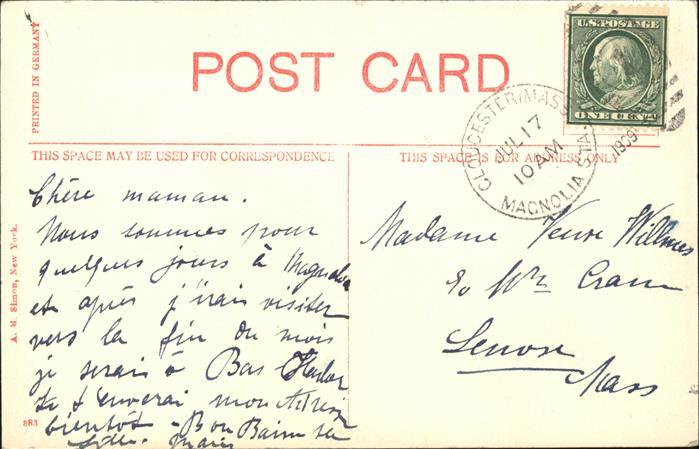 POST CARD
PRINTED IN GERMANY
U.S. POSTAGE
ONE CENT
GLOUCESTER, MASS.
JUL 17
10 AM
MAGNOLIA STA.
1909
THIS SPACE MAY BE USED FOR CORRESPONDENCE
THIS SPACE IS FOR ADDRESS ONLY
A. M. Simon, New York.
883
Chère maman.
Nous sommes pour
quelques jours à Magnolia
et après j'irais visiter
vers la fin du mois
je serais à Bar Harbor
Je t'enverai mon Adresse
bientôt - Bon Baiser
Madame Veuve Willmes
c/o Wm Crane
Lenox
Mass